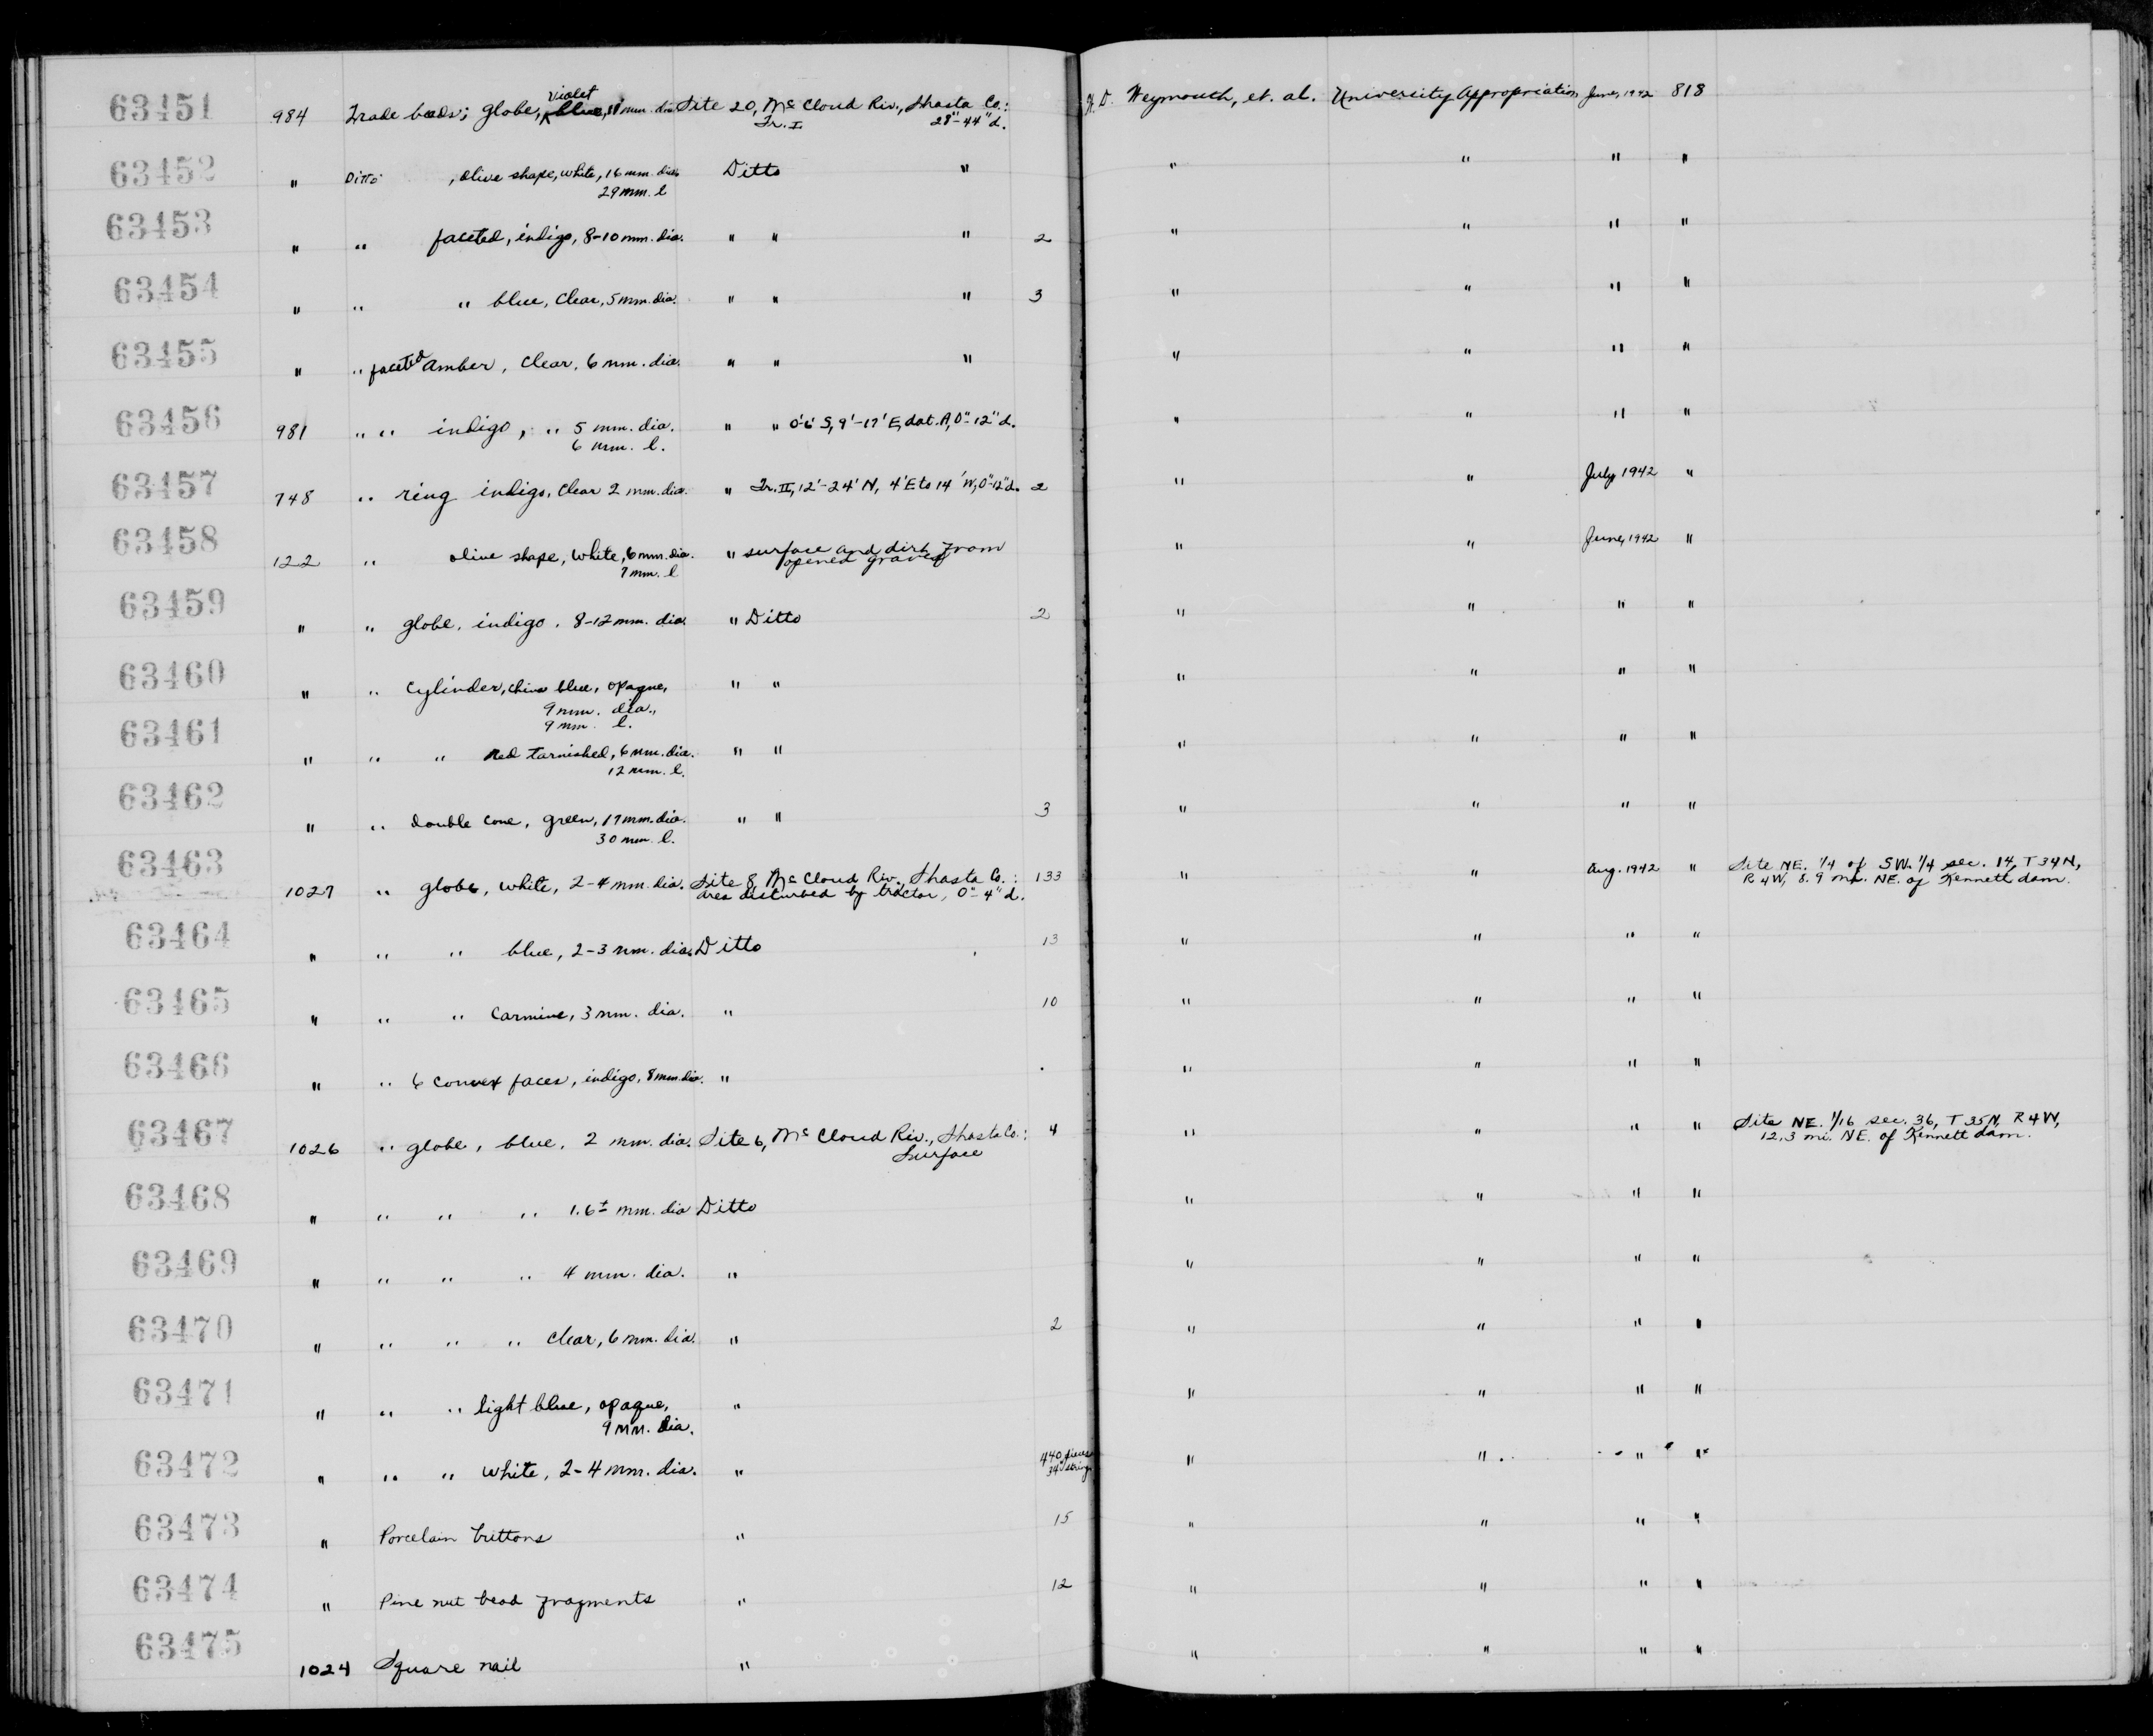 63451 984 Trade beads; globe, violet blue, 18 mm. dia. Site 20, Mc Cloud Riv., Shasta Co.: H. D. Weymouth, et. al. University Appropriation June, 1942 818
Tr. I 28"-44" d.
63452 " Ditto , olive shape, white, 16 mm. dia. Ditto " " " " "
29 mm. l
63453 " " faceted, indigo, 8-10 mm. dia. " " " 2 " " " "
63454 " " " blue, clear, 5 mm. dia. " " " 3 " " " "
63455 " " faceted amber, clear, 6 mm. dia. " " " " " " "
63456 981 " " indigo, " 5 mm. dia. " " 0'-6' S, 9'-17' E, dat. A, 0"-12" d. " " " "
6 mm. l.
63457 748 " ring indigo, clear 2 mm. dia. " Tr. II, 12'-24' N, 4' E to 14' W, 0"-12" d. 2 " " July 1942 "
63458 122 " olive shape, white, 6 mm. dia. " surface and dirt from " " June, 1942 "
7 mm. l opened graves
63459 " " globe, indigo, 8-12 mm. dia. " Ditto 2 " " " "
63460 " " cylinder, china blue, opaque, " " " " " "
9 mm. dia.,
9 mm. l.
63461 " " " red tarnished, 6 mm. dia. " " " " " "
12 mm. l.
63462 " " double cone, green, 17 mm. dia. " " 3 " " " "
30 mm. l.
63463 1027 " globe, white, 2-4 mm. dia. Site 8 Mc Cloud Riv., Shasta Co.: 133 " " Aug. 1942 " Site NE. 1/4 of SW. 1/4 sec. 14, T 34 N,
area disturbed by tractor, 0"-4" d. R 4 W, 8.9 mi. NE. of Kennett dam.
63464 " " " blue, 2-3 mm. dia. Ditto 13 " " " "
63465 " " " carmine, 3 mm. dia. " 10 " " " "
63466 " " 6 convex faces, indigo, 8 mm. dia. " " " " "
63467 1026 " globe, blue, 2 mm. dia. Site 6, Mc Cloud Riv., Shasta Co.: 4 " " " " Site NE. 1/16 sec. 36, T 35 N, R 4 W,
Surface 12.3 mi. NE. of Kennett dam.
63468 " " " " 1.6± mm. dia Ditto " " " "
63469 " " " " 4 mm. dia. " " " " "
63470 " " " " clear, 6 mm. dia. " 2 " " " "
63471 " " " light blue, opaque, " " " " "
9 mm. dia.
63472 " " " white, 2-4 mm. dia. " 440 pieces " " " "
34" string
63473 " Porcelain buttons " 15 " " " "
63474 " Pine nut bead fragments " 12 " " " "
63475 1024 Square nail " " " " "